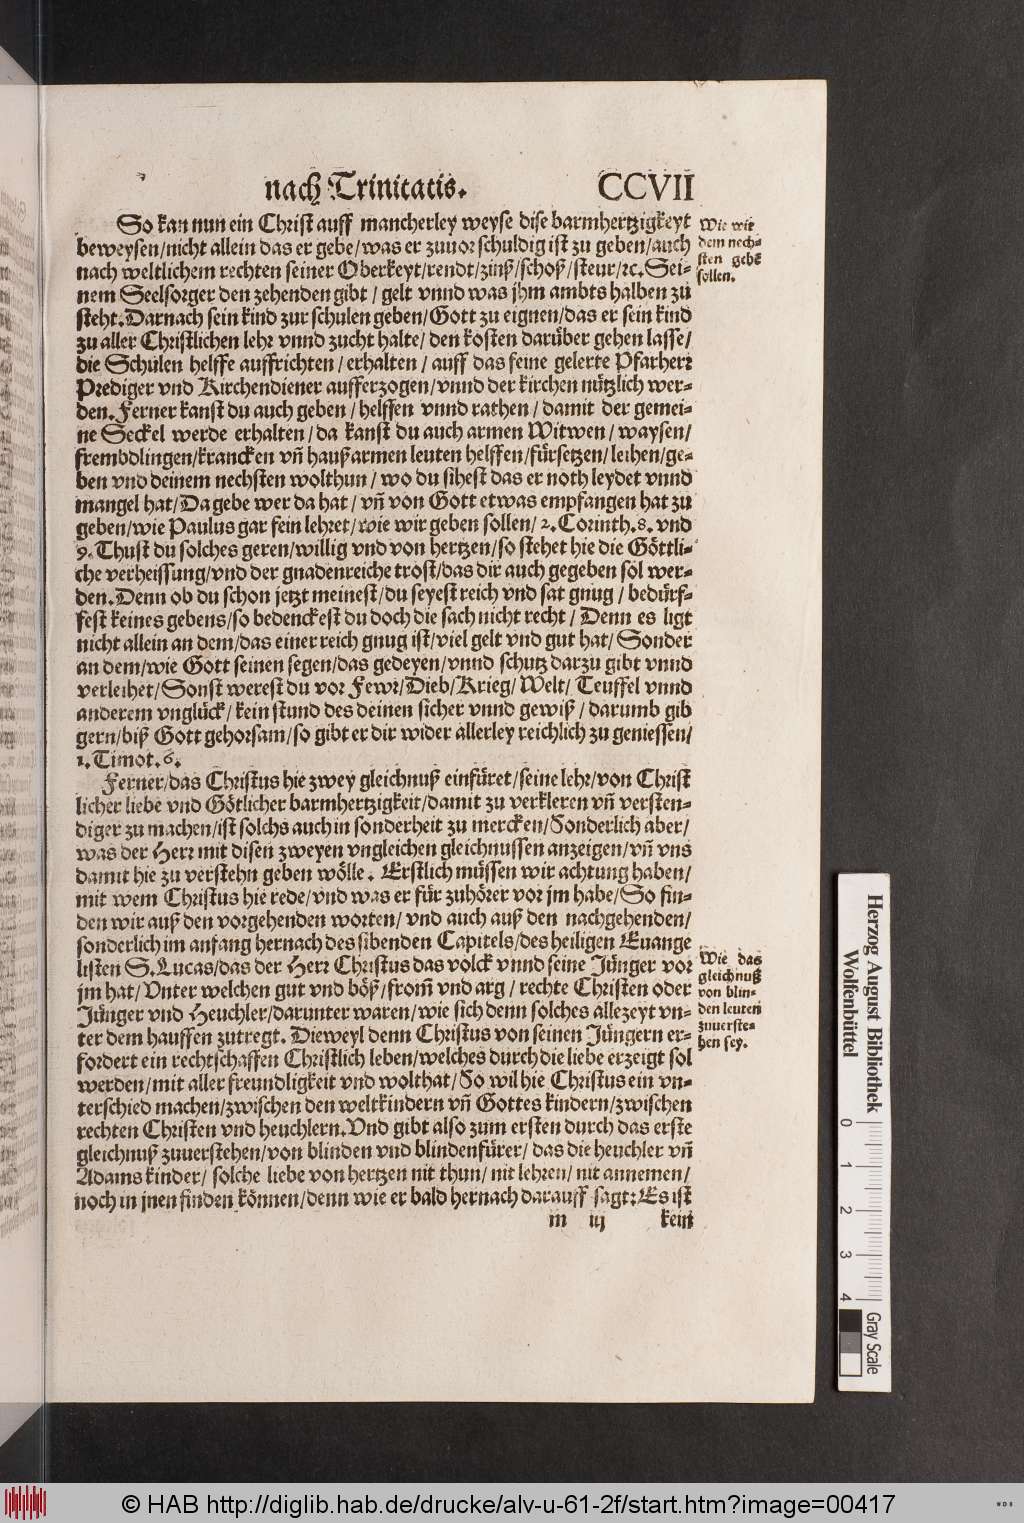 nach Trinitatis. CCVII
So kan nun ein Christ auff mancherley weyse dise barmhertzigkeyt
beweysen/nicht allein das er gebe/was er zuuor schuldig ist zu geben/auch
nach weltlichem rechten seiner Oberkeyt/rendt/zinß/schoß/steur/ꝛc. Sei-
nem Seelsorger den zehenden gibt/ gelt vnnd was jhm ambts halben zů
steht. Darnach sein kind zur schulen geben/Gott zu eignen/das er sein kind
zu aller Christlichen lehr vnnd zucht halte/ den kosten darüber gehen lasse/
die Schulen helffe auffrichten/ erhalten/ auff das feine gelerte Pfarherꝛ
Prediger vnd Kirchendiener aufferzogen/vnnd der kirchen nützlich wer-
den. Ferner kanst du auch geben/ helffen vnnd rathen/ damit der gemei-
ne Seckel werde erhalten/ da kanst du auch armen Witwen/ waysen/
frembdlingen/krancken vñ haußarmen leuten helffen/fürsetzen/leihen/ge-
ben vnd deinem nechsten wolthun/ wo du sihest das er noth leydet vnnd
mangel hat/ Da gebe wer da hat/ vñ von Gott etwas empfangen hat zu
geben/wie Paulus gar fein lehret/ wie wir geben sollen/ 2. Corinth. 8. vnd
9. Thust du solches geren/willig vnd von hertzen/so stehet hie die Göttli-
che verheissung/vnd der gnadenreiche trost/das dir auch gegeben sol wer-
den. Denn ob du schon jetzt meinest/du seyest reich vnd sat gnug/ bedürf-
fest keines gebens/so bedenckest du doch die sach nicht recht/ Denn es ligt
nicht allein an dem/das einer reich gnug ist/viel gelt vnd gut hat/ Sonder
an dem/wie Gott seinen segen/das gedeyen/vnnd schutz darzu gibt vnnd
verleihet/Sonst werest du vor Fewr/Dieb/Krieg/ Welt/ Teuffel vnnd
anderem vnglück/ kein stund des deinen sicher vnnd gewiß/ darumb gib
gern/biß Gott gehorsam/so gibt er dir wider allerley reichlich zu geniessen/
1. Timot. 6.
Ferner/das Christus hie zwey gleichnuß einfüret/seine lehr/von Christ
licher liebe vnd Götlicher barmhertzigkeit/damit zu verkleren vñ versten-
diger zu machen/ist solchs auch in sonderheit zu mercken/Sonderlich aber/
was der Herꝛ mit disen zweyen vngleichen gleichnussen anzeigen/vñ vns
damit hie zu verstehn geben wölle. Erstlich müssen wir achtung haben/
mit wem Christus hie rede/vnd was er für zuhörer vor jm habe/So fin-
den wir auß den vorgehenden worten/ vnd auch auß den nachgehenden/
sonderlich im anfang hernach des sibenden Capitels/des heiligen Euange
listen S. Lucas/das der Herꝛ Christus das volck vnnd seine Jünger vor
jm hat/Vnter welchen gut vnd böß/from̃ vnd arg/ rechte Christen oder
Jünger vnd Heuchler/darunter waren/wie sich denn solches allezeyt vn-
ter dem hauffen zutregt. Dieweyl denn Christus von seinen Jüngern er-
fordert ein rechtschaffen Christlich leben/welches durch die liebe erzeigt sol
werden/mit aller freundligkeit vnd wolthat/So wil hie Christus ein vn-
terschied machen/zwischen den weltkindern vñ Gottes kindern/zwischen
rechten Christen vnd heuchlern. Vnd gibt also zum ersten durch das erste
gleichnuß zuuerstehen/von blinden vnd blindenfürer/ das die heuchler vñ
Adams kinder/ solche liebe von hertzen nit thun/ nit lehren/ nit annemen/
noch in jnen finden können/denn wie er bald hernach darauff sagt: Es ist
m iij kein
Wie wir
dem nech-
sten gebẽ
sollen.
Wie das
gleichnuß
von blin-
den leuten
zuuerste-
hen sey.
Herzog August Bibliothek
Wolfenbüttel
0 1 2 3 4
Gray Scale
© HAB http://diglib.hab.de/drucke/alv-u-61-2f/start.htm?image=00417